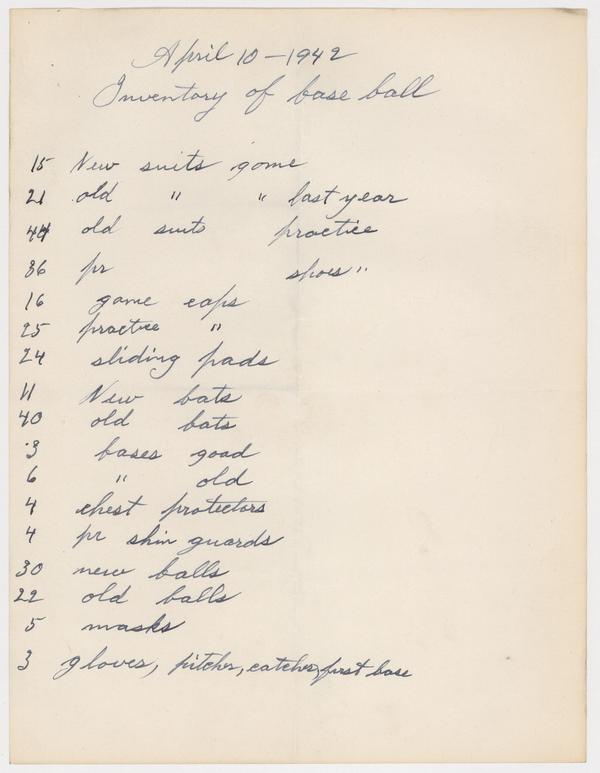 April 10 - 1942
Inventory of base ball
15 New suits game
21 old " " last year
44 old suits practice
36 pr shoes "
16 game caps
25 practice "
24 sliding pads
11 New bats
40 old bats
3 bases good
6 " old
4 chest protectors
4 pr shin guards
30 new balls
22 old balls
5 masks
3 gloves, pitcher, catcher, first base